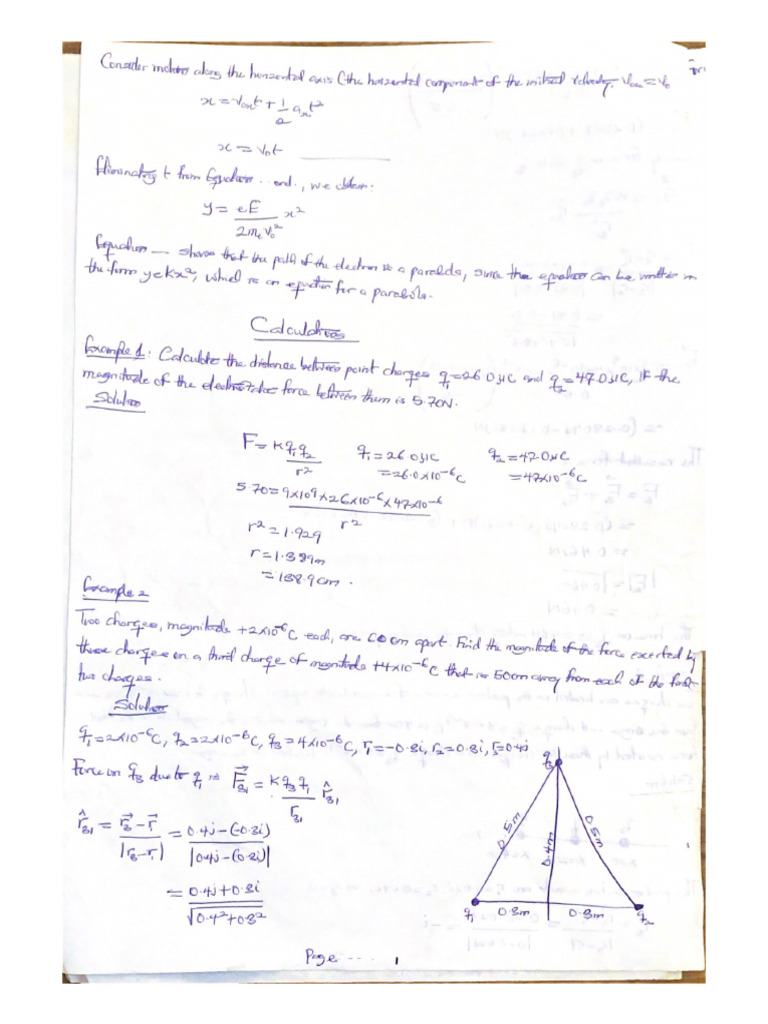 Consider motion along the horizontal axis (the horizontal component of the initial velocity, Vox = Vo
x = Voxt + 1/2 axt²
x = Vot
Eliminating t from Equation .. and .., we obtain:
y = eE/2meVo² x²
Equation — shows that the path of the electron is a parabola, since the equation can be written in
the form y=Kx², which is an equation for a parabola.
Calculations
Example 1: Calculate the distance between point charges q1=26.0μC and q2=47.0μC, if the
magnitude of the electrostatic force between them is 5.70N.
Solution
F = Kq1q2/r² q1=26.0μC q2=47.0μC
=26.0x10⁻⁶C =47x10⁻⁶C
5.70=9x10⁹x26x10⁻⁶x47x10⁻⁶/r²
r²=1.929
r=1.389m
=138.9cm.
Example 2
Two charges, magnitude +2x10⁻⁶C each, are 60cm apart. Find the magnitude of the force exerted by
these charges on a third charge of magnitude +4x10⁻⁶C that is 50cm away from each of the first
two charges.
Solution
q1=2x10⁻⁶C, q2=2x10⁻⁶C, q3=4x10⁻⁶C, r1=-0.3i, r2=0.3i, r3=0.4j
Force on q3 due to q1 is F⃗31 = Kq3q1/r31 r̂31
r̂31 = r⃗3-r⃗1/|r3-r1| = 0.4j-(-0.3i)/|0.4j-(0.3i)|
= 0.4j+0.3i/√0.4²+0.3²
q3
0.5m
0.4m
0.5m
q1 0.3m 0.3m q2
Page .... 1